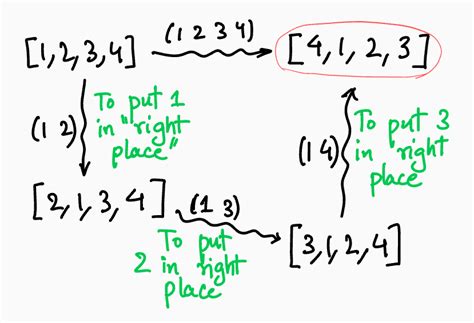 [1,2,3,4] (1 2 3 4) [4,1,2,3]
(1 2)
To put 1
in "right
place"
(1 4)
To put 3
in right
place
[2,1,3,4] (1 3) [3,1,2,4]
To put
2 in right
place